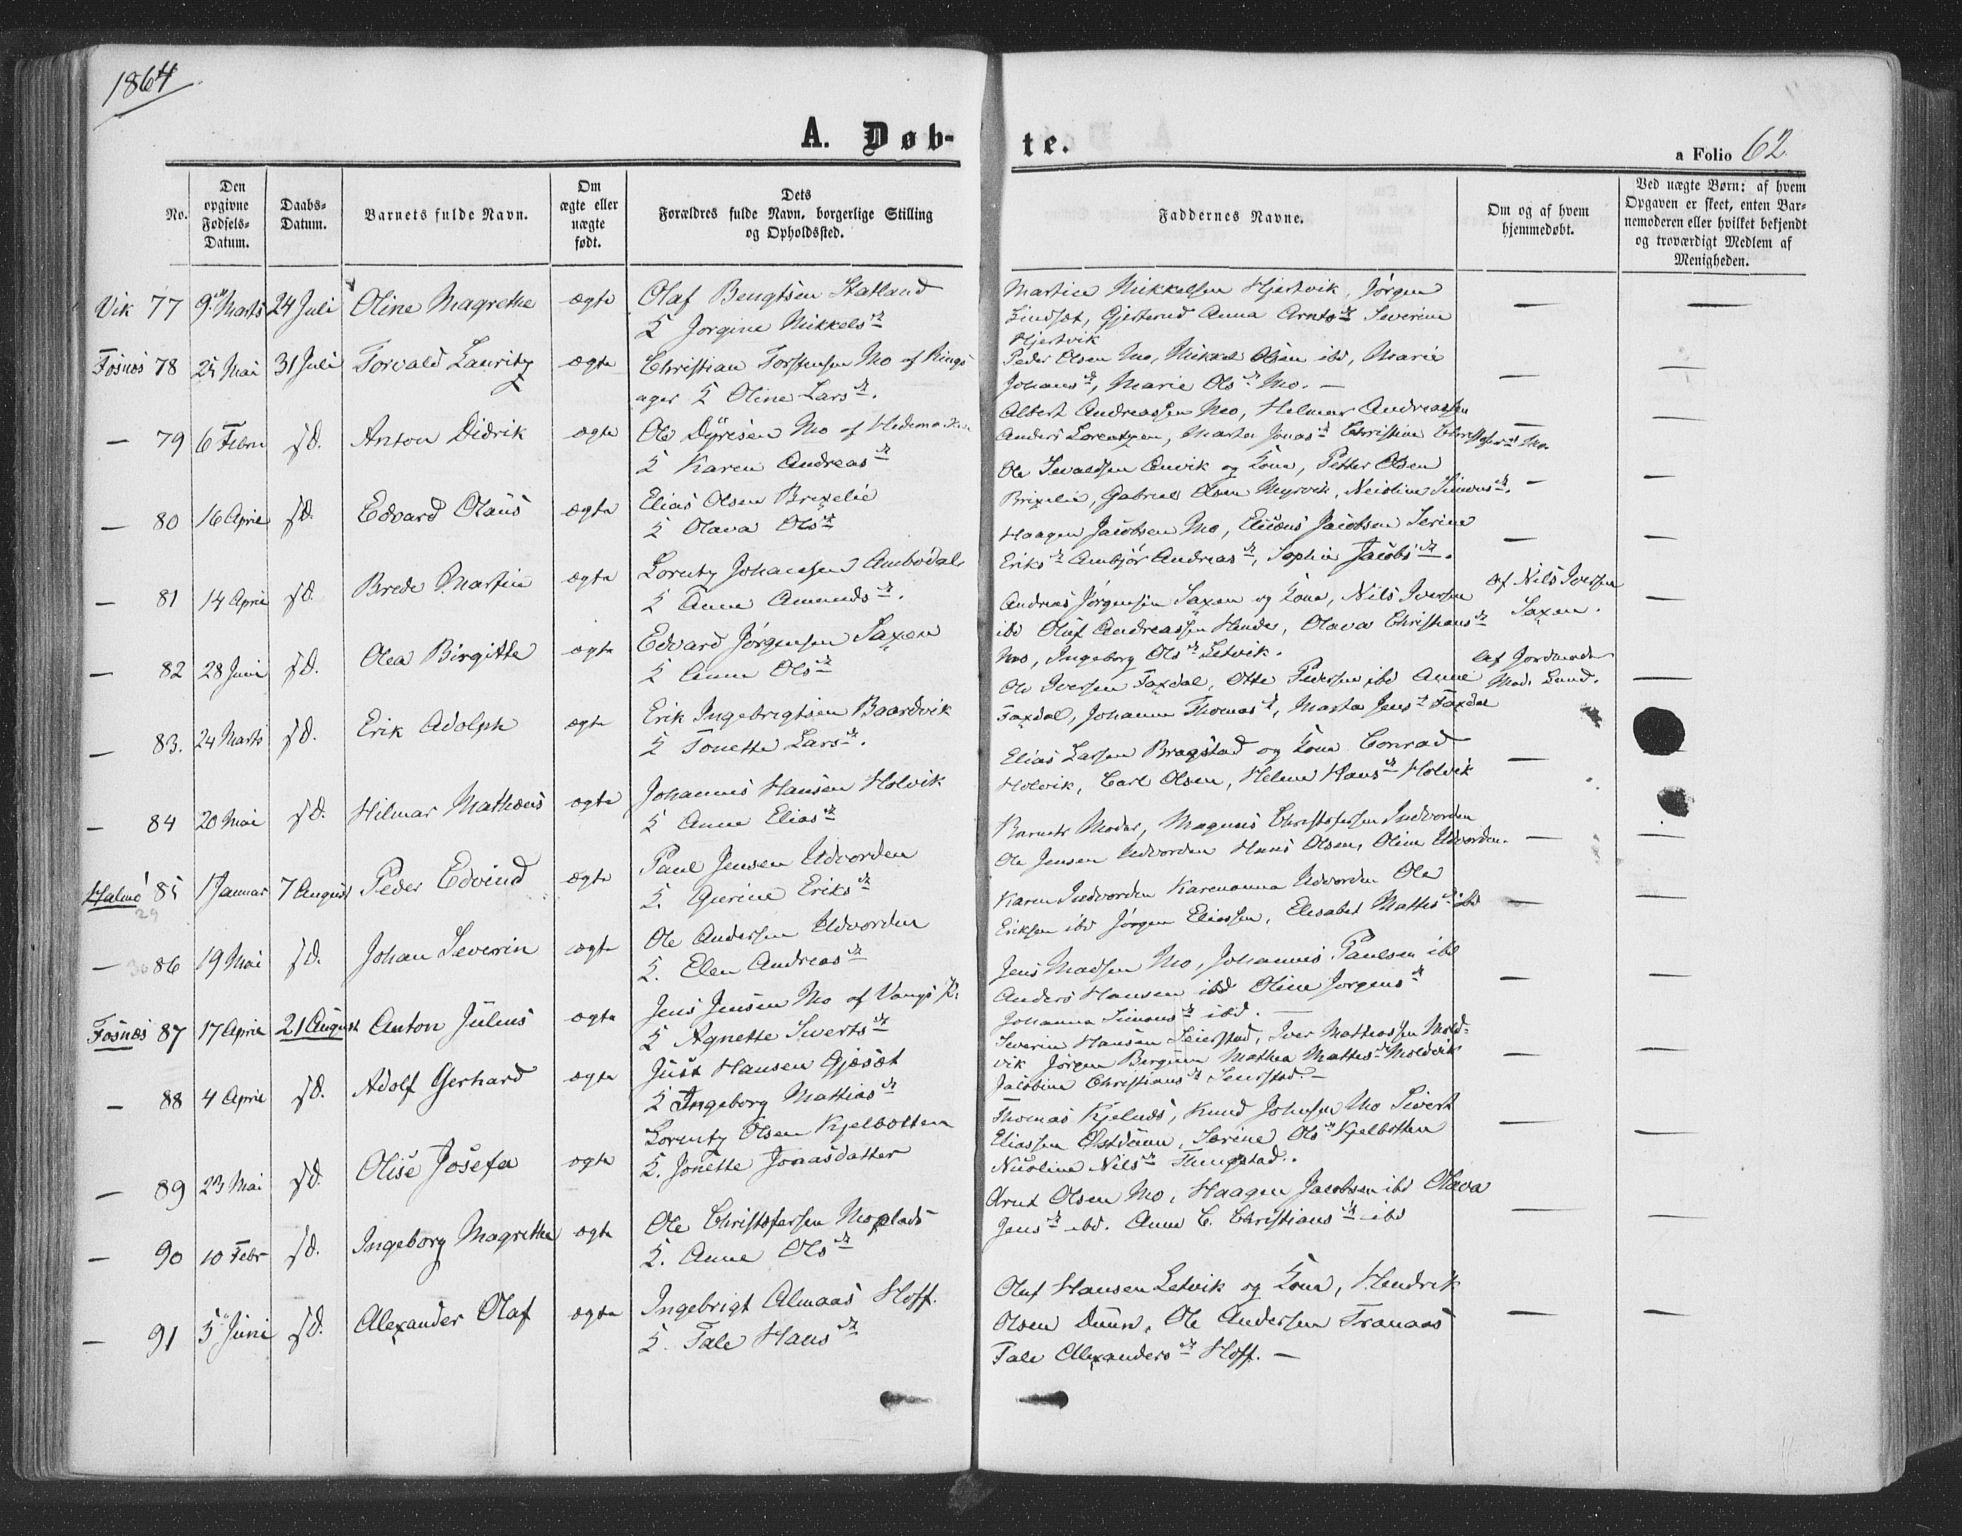 1864
A. Døb-
te.
a Folio 62
No.
Den opgivne Fødsels-Datum.
Daabs-Datum.
Barnets fulde Navn.
Om ægte eller nægte født.
Dets Forældres fulde Navn, borgerlige Stilling og Opholdssted.
Faddernes Navne.
Om og af hvem hjemmedøbt.
Ved nægte Børn: af hvem Opgaven er skeet, enten Barnemoderen eller hvilket bekjendt og troværdigt Medlem af Menigheden.
Vik 77 9 Marts 24 Juli Oline Magrethe ægte Olaf Bengtsen Statland
& Jorgine Mikkelsdr
Martin Mikkelsen Hjertvik, Jørgen
Anna Arntsdr Severine
Hjertvik
Fosnæs 78 25 Mai 31 Juli Torvald Lauritz ægte Christian Torstensen Mo af Rings
ager & Oline Larsdr.
Peder Olsen Mo, Mikkel Olsen ibd, Marie
Johansdr, Marie Olsdr Mo. —
— 79 6 Febru sd. Anton Didrik ægte Ole Dyresen Mo af Hedemarken
& Karen Andreasdr
Albert Andreassen Mo, Helmer Andreassen
Anders Lorentzen, Marta Jonasdr Christine Christofersdr Mo.
— 80 16 April sd. Edvard Olaus ægte Elias Olsen Brexelie
& Olava Olsdr
Ole Sevaldsen Anvik og Kone, Petter Olsen
Brixelie, Gabriel Olsen Myrvik, Simonsdr.
— 81 14 April sd. Brede Martin ægte Lorentz Johansen Ambodal
& Anne Amundsdr.
Haagen Jacobsen Mo, Jacobsen Serine
Eriksdr Ambjør Andreasdr, Sophie Jacobsdr.
— 82 28 Juni sd. Olea Birgitte ægte Edvard Jørgensen Saxen
& Anne Olsdr
Andreas Jørgensen Saxen og Kone, Nils Iversen
ibd Oluf Andreassen Olava Christiansdr
Mo, Ingeborg Olsdr Setvik.
Af Nils Iversen
Saxen.
— 83. 24 Marts sd. Erik Adolph ægte Erik Ingebrigtsen Baardvik
& Tonette Larsdr.
Ole Iversen Faxdal, Otte Pedersen ibd Anne
Faxdal, Johanna Thomasdr, Marta Jensdr Faxdal
Af Jordmoder
Mad. Lund.
— 84 20 Mai sd. Hilmar Mathæus ægte Johannes Hansen Holvik
& Anne Eliasdr
Elias Larsen Bragstad og Kone Conrad
Holvik, Carl Olsen, Helene Hansdr Holvik
Halmø 85 1 Januar 7 August Peder Edvind ægte Paul Jensen Udvorden
& Gurine Eriksdr
29
Barnets Moder, Magnus Christofersen Indvorden
Ole Jensen Udvorden Hans Olsen, Oline Udvorden.
— 30 86 19 Mai sd. Johan Severin ægte Ole Andersen Udvorden
& Elen Andreasdr
Karen Indvorden Karenanna Udvorden Ole
Eriksen ibd Jørgen Eliassen, Elisabet Mattisdr ibd
Fosnæs 87 17 April 21 August Anton Julius ægte Jens Jensen Mo af Vangs
& Agnette Sivertsdr
Jens Madsen Mo, Johannes Paulsen ibd
Anders Hansen ibd Oline Jørgensdr
Johanna Simonsdr ibd. —
— 88 4 April sd. Adolf Gerhard ægte Just Hansen Gjæsæt
& Ingeborg Mathiasdr
Severin Hansen Seierstad, Iver Mathiassen Mold-
vik Jørgen Mathea Mattisdr Moldvik
Jacobine Christiansdr Seierstad. —
— 89 23 Mai sd. Olise Josefa ægte Lorentz Olsen Kjelbotten
& Jonette Jonasdatter
Thomas Kjelnæs, Knud Johnsen Mo Sivert
Eliassen Østduun, Serine Olsdr Kjelbotten
Nicoline Nilsdr
— 90 10 Febr sd. Ingeborg Magrethe ægte Ole Christofersen Moplads
& Anne Olsdr
Arnt Olsen Mo, Haagen Jacobsen ibd Olava
Jensdr ibd. Anne C. Christiansdr ibd
— 91 5 Juni sd. Alexander Olaf ægte Ingebrigt Almaas Hoff.
& Tale Hansdr
Oluf Hansen Setvik og Kone, Hendrik
Olsen Duun, Ole Andersen Tranaas
Tale Alexandersdr Hoff. —